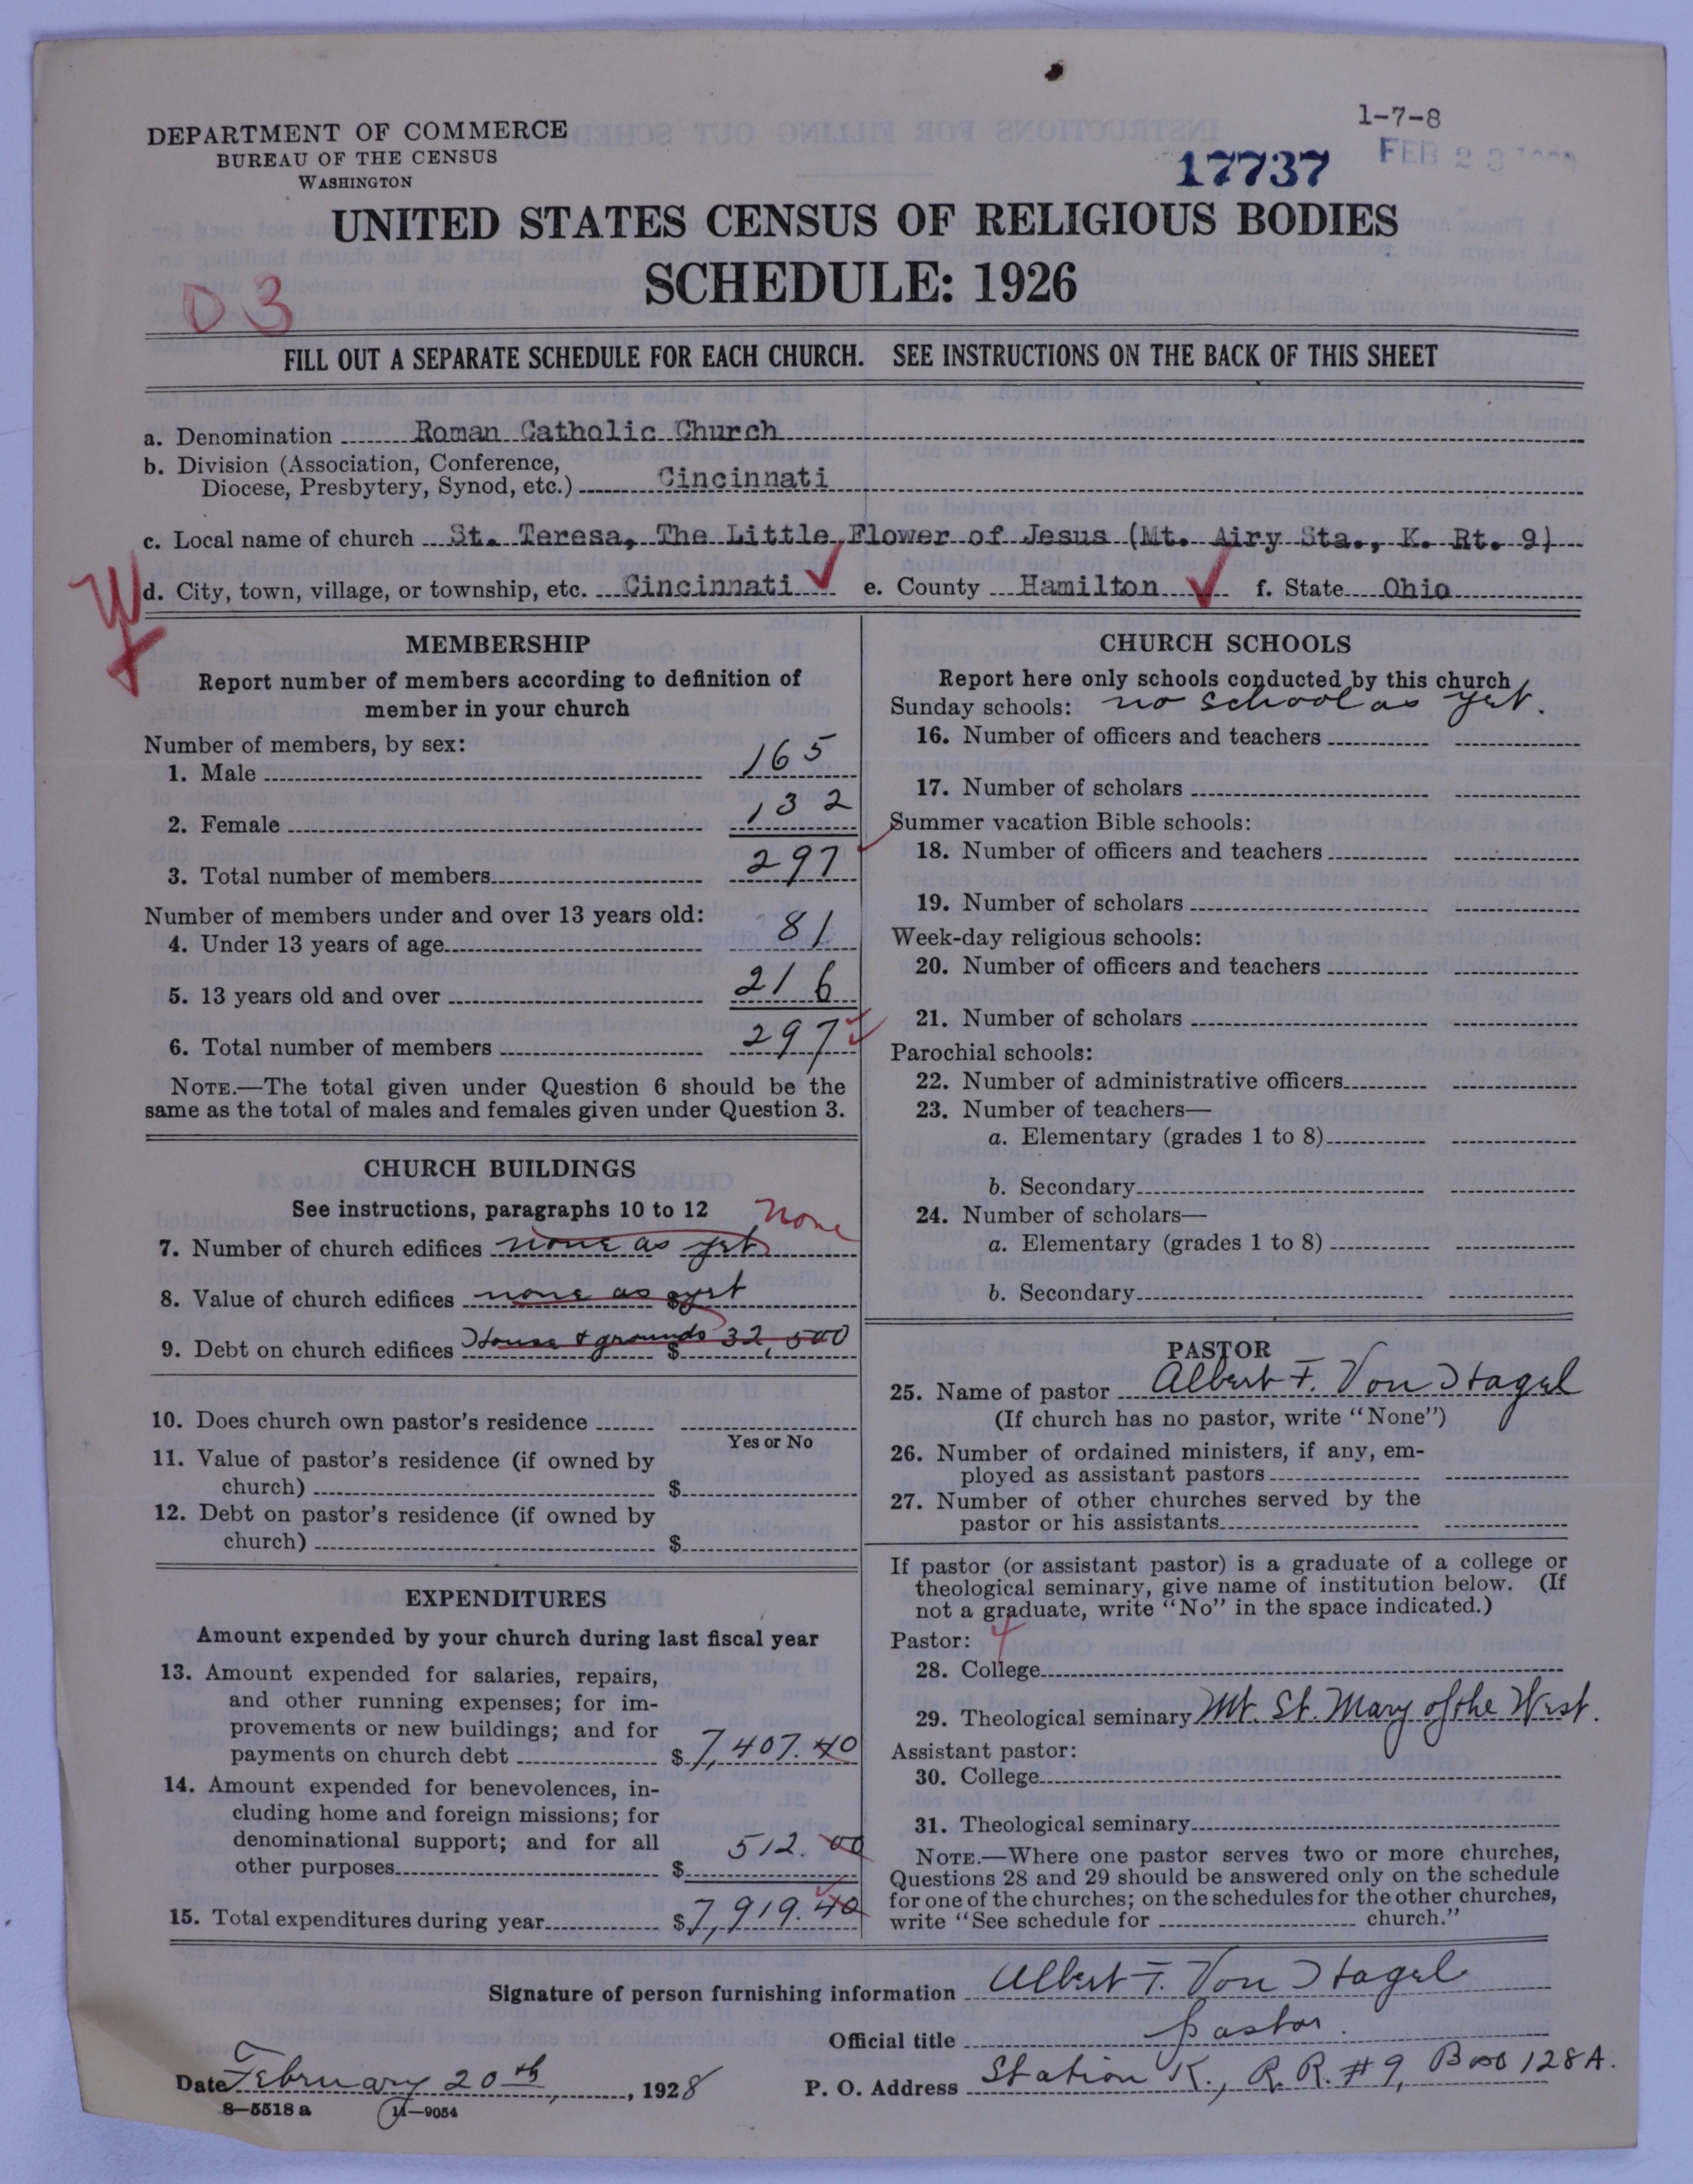 1-7-8
DEPARTMENT OF COMMERCE
BUREAU OF THE CENSUS
WASHINGTON
17737
FEB 23
UNITED STATES CENSUS OF RELIGIOUS BODIES
SCHEDULE: 1926
03
FILL OUT A SEPARATE SCHEDULE FOR EACH CHURCH. SEE INSTRUCTIONS ON THE BACK OF THIS SHEET
a. Denomination Roman Catholic Church
b. Division (Association, Conference,
Diocese, Presbytery, Synod, etc.) Cincinnati
c. Local name of church St. Teresa, The Little Flower of Jesus (Mt. Airy Sta., K. Rt. 9)
d. City, town, village, or township, etc. Cincinnati e. County Hamilton f. State Ohio
MEMBERSHIP
Report number of members according to definition of
member in your church
Number of members, by sex:
1. Male 165
2. Female 132
3. Total number of members 297
Number of members under and over 13 years old:
4. Under 13 years of age 81
5. 13 years old and over 216
6. Total number of members 297
NOTE.—The total given under Question 6 should be the
same as the total of males and females given under Question 3.
CHURCH BUILDINGS
See instructions, paragraphs 10 to 12 none
7. Number of church edifices none as yet
8. Value of church edifices none as $ yet
9. Debt on church edifices House & grounds $ 32,500
10. Does church own pastor's residence
Yes or No
11. Value of pastor's residence (if owned by
church) $
12. Debt on pastor's residence (if owned by
church) $
EXPENDITURES
Amount expended by your church during last fiscal year
13. Amount expended for salaries, repairs,
and other running expenses; for im-
provements or new buildings; and for
payments on church debt $ 7,407.40
14. Amount expended for benevolences, in-
cluding home and foreign missions; for
denominational support; and for all
other purposes $ 512.00
15. Total expenditures during year $ 7,919.40
CHURCH SCHOOLS
Report here only schools conducted by this church
Sunday schools: no school as yet.
16. Number of officers and teachers
17. Number of scholars
Summer vacation Bible schools:
18. Number of officers and teachers
19. Number of scholars
Week-day religious schools:
20. Number of officers and teachers
21. Number of scholars
Parochial schools:
22. Number of administrative officers
23. Number of teachers—
a. Elementary (grades 1 to 8)
b. Secondary
24. Number of scholars—
a. Elementary (grades 1 to 8)
b. Secondary
PASTOR
25. Name of pastor Albert F. Von Hagel
(If church has no pastor, write "None")
26. Number of ordained ministers, if any, em-
ployed as assistant pastors
27. Number of other churches served by the
pastor or his assistants
If pastor (or assistant pastor) is a graduate of a college or
theological seminary, give name of institution below. (If
not a graduate, write "No" in the space indicated.)
Pastor: 4
28. College
29. Theological seminary Mt. St. Mary of the West.
Assistant pastor:
30. College
31. Theological seminary
NOTE.—Where one pastor serves two or more churches,
Questions 28 and 29 should be answered only on the schedule
for one of the churches; on the schedules for the other churches,
write "See schedule for church."
Signature of person furnishing information Albert F. Von Hagel
Official title pastor.
Date February 20th, 1928 P. O. Address Station K., R.R. #9, Box 128A.
8—5518 a 11—9054